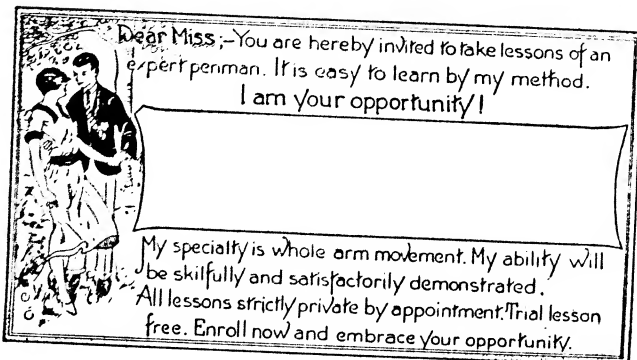 Dear Miss;–You are hereby invited to take lessons of an
expert penman. It is easy to learn by my method.
I am your opportunity!
My specialty is whole arm movement. My ability will
be skilfully and satisfactorily demonstrated.
All lessons strictly private by appointment. Trial lesson
free. Enroll now and embrace your opportunity.